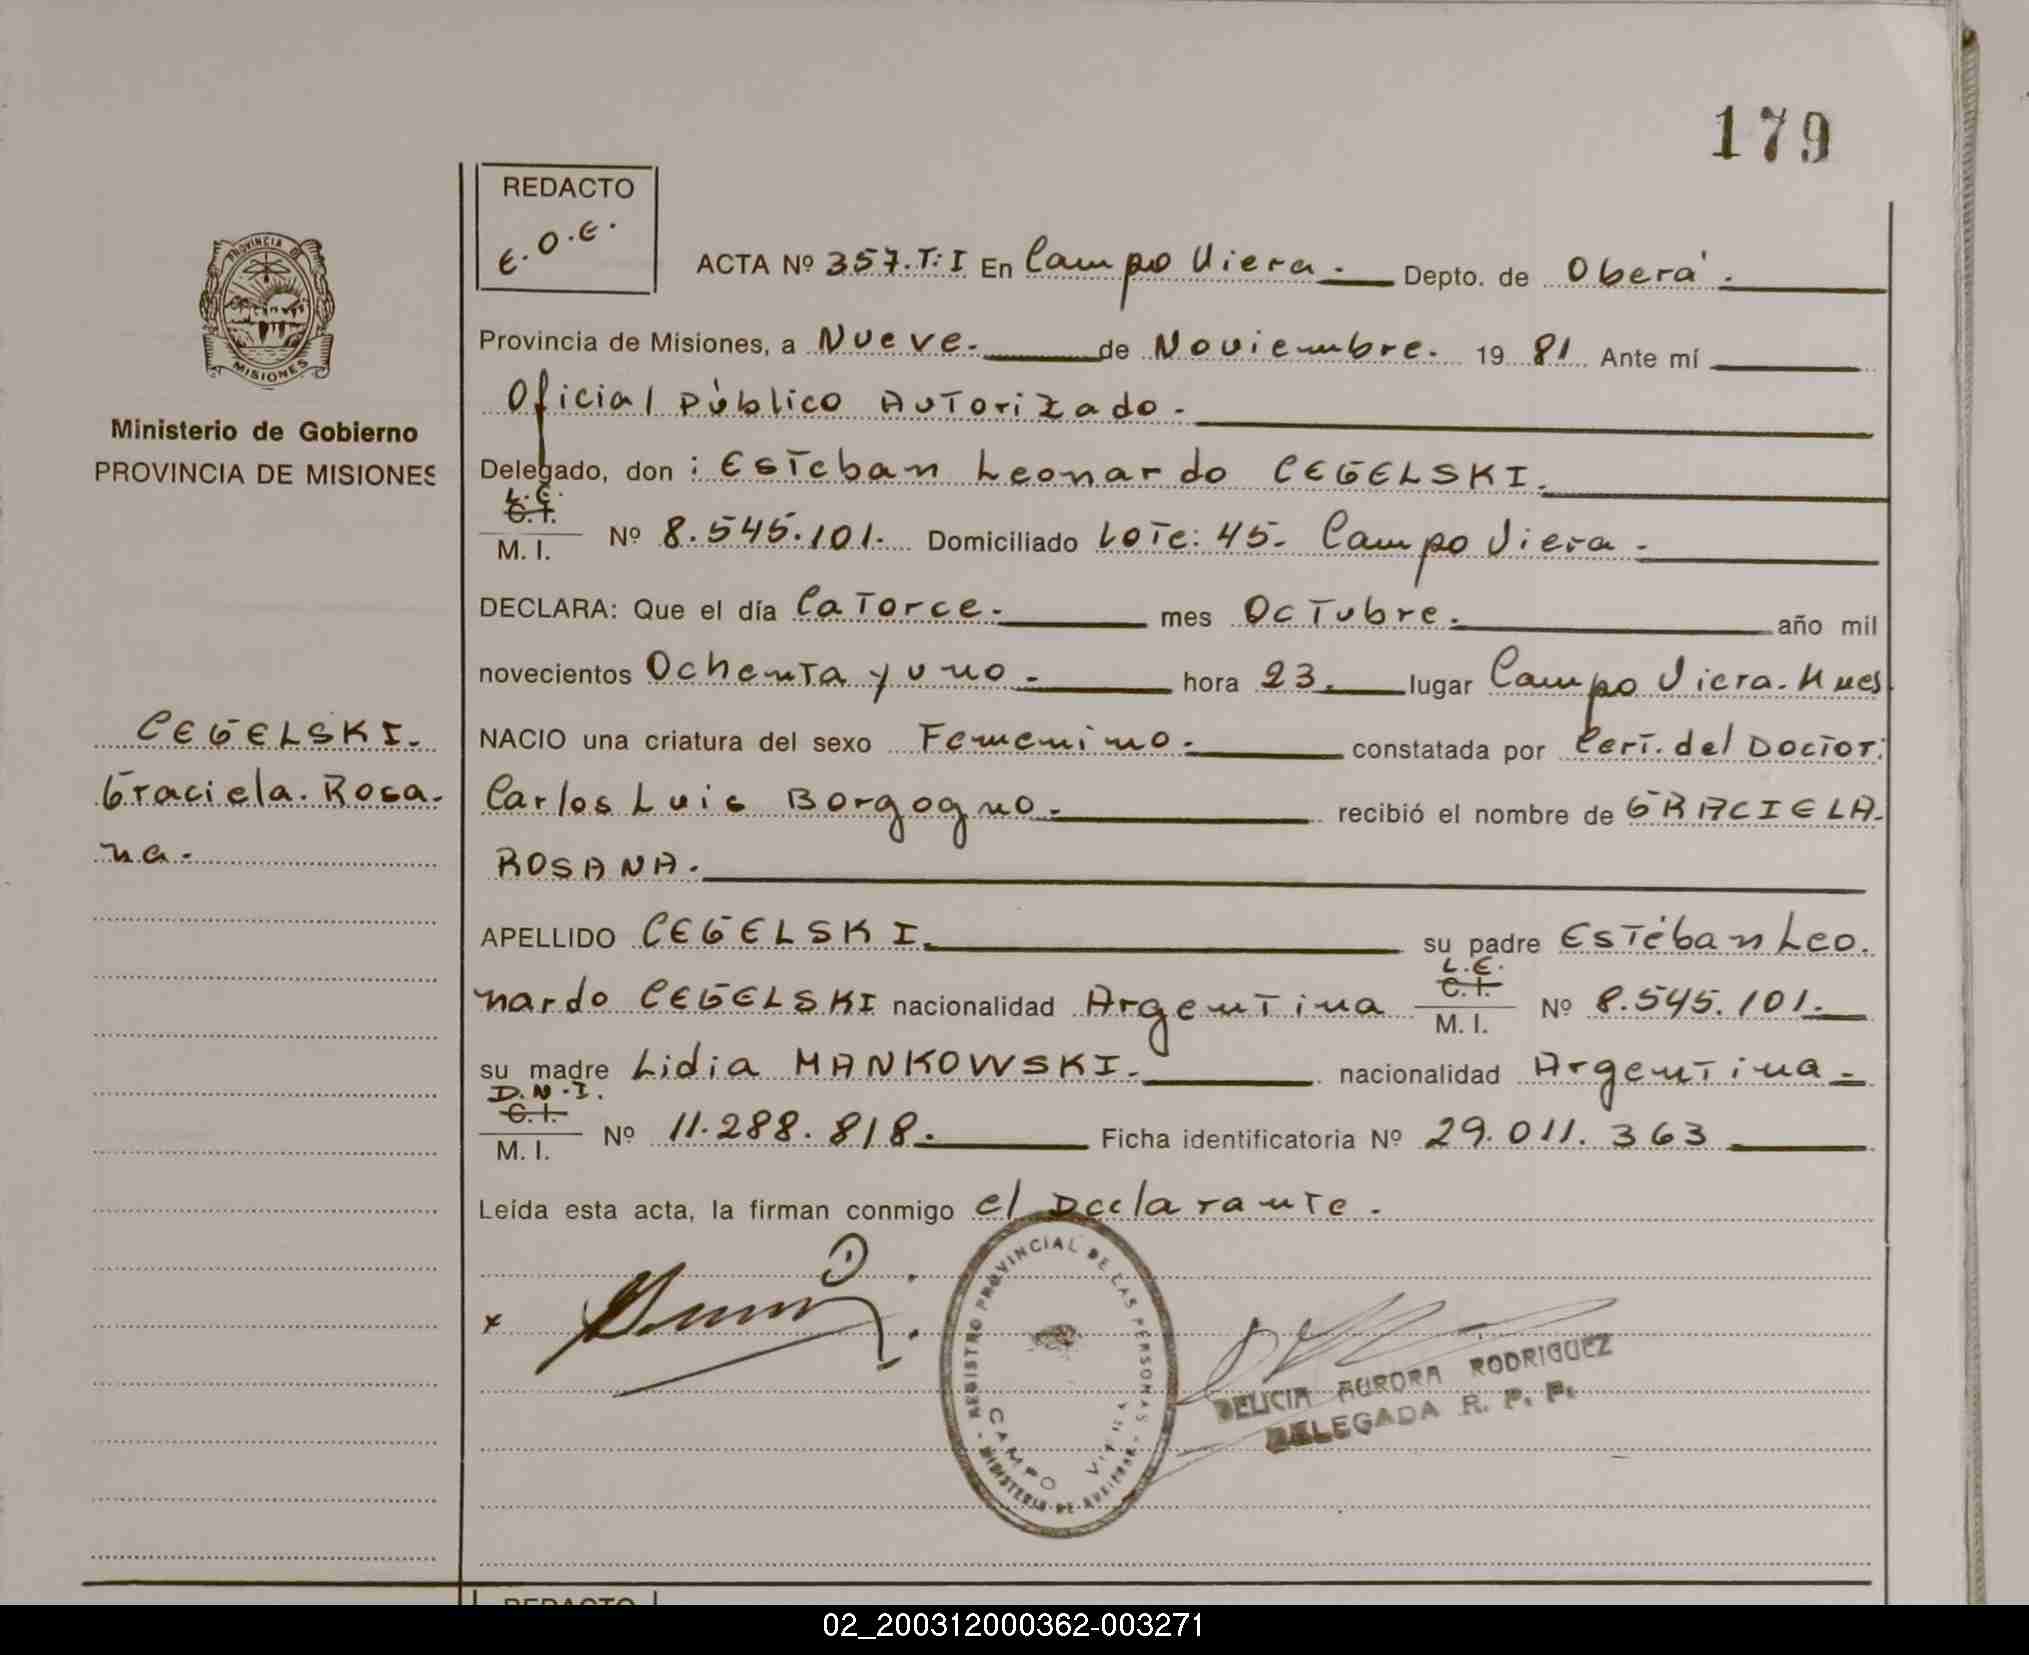 179
REDACTO
E.O.E.
PROVINCIA DE
MISIONES
Ministerio de Gobierno
PROVINCIA DE MISIONES
CEGELSKI.
Graciela. Rosa-
na.
ACTA Nº 357.T:I En Campo Viera. Depto. de Oberá.
Provincia de Misiones, a Nueve. de Noviembre. 1981 Ante mí
Oficial Público Autorizado.
Delegado, don : Esteban Leonardo CEGELSKI.
L.E.
C.I.
M. I. Nº 8.545.101. Domiciliado Lote: 45. Campo Viera.
DECLARA: Que el día Catorce. mes Octubre. año mil
novecientos Ochenta y uno. hora 23. lugar Campo Viera. Mnes
NACIO una criatura del sexo Femenino. constatada por Cert. del Doctor:
Carlos Luis Borgogno. recibió el nombre de GRACIELA-
ROSANA.
APELLIDO CEGELSKI. su padre Estéban Leo.
L.E.
C.I.
nardo CEGELSKI nacionalidad Argentina M. I. Nº 8.545.101.
su madre Lidia MANKOWSKI. nacionalidad Argentina
D.N.I.
C.I.
M. I. Nº 11.288.818. Ficha identificatoria Nº 29.011.363
Leída esta acta, la firman conmigo el Declarante.
x
REGISTRO PROVINCIAL DE LAS PERSONAS
CAMPO VIERA
MINISTERIO DE
DELICIA AURORA RODRIGUEZ
DELEGADA R. P. P.
REDACTO
02_200312000362-003271